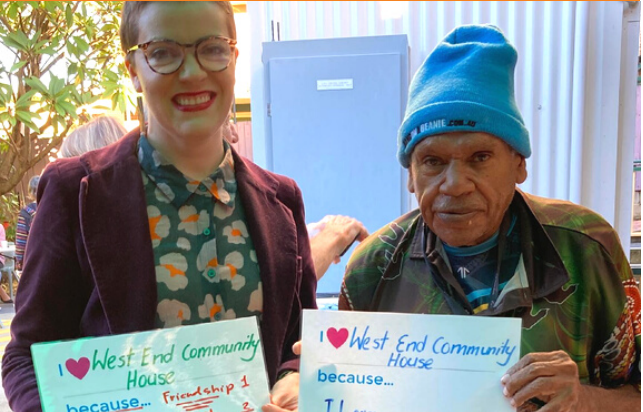 BEANIE.COM.AU
I ♥ West End Community
House
because... Friendship 1
I ♥ West End Community
House
because...
I